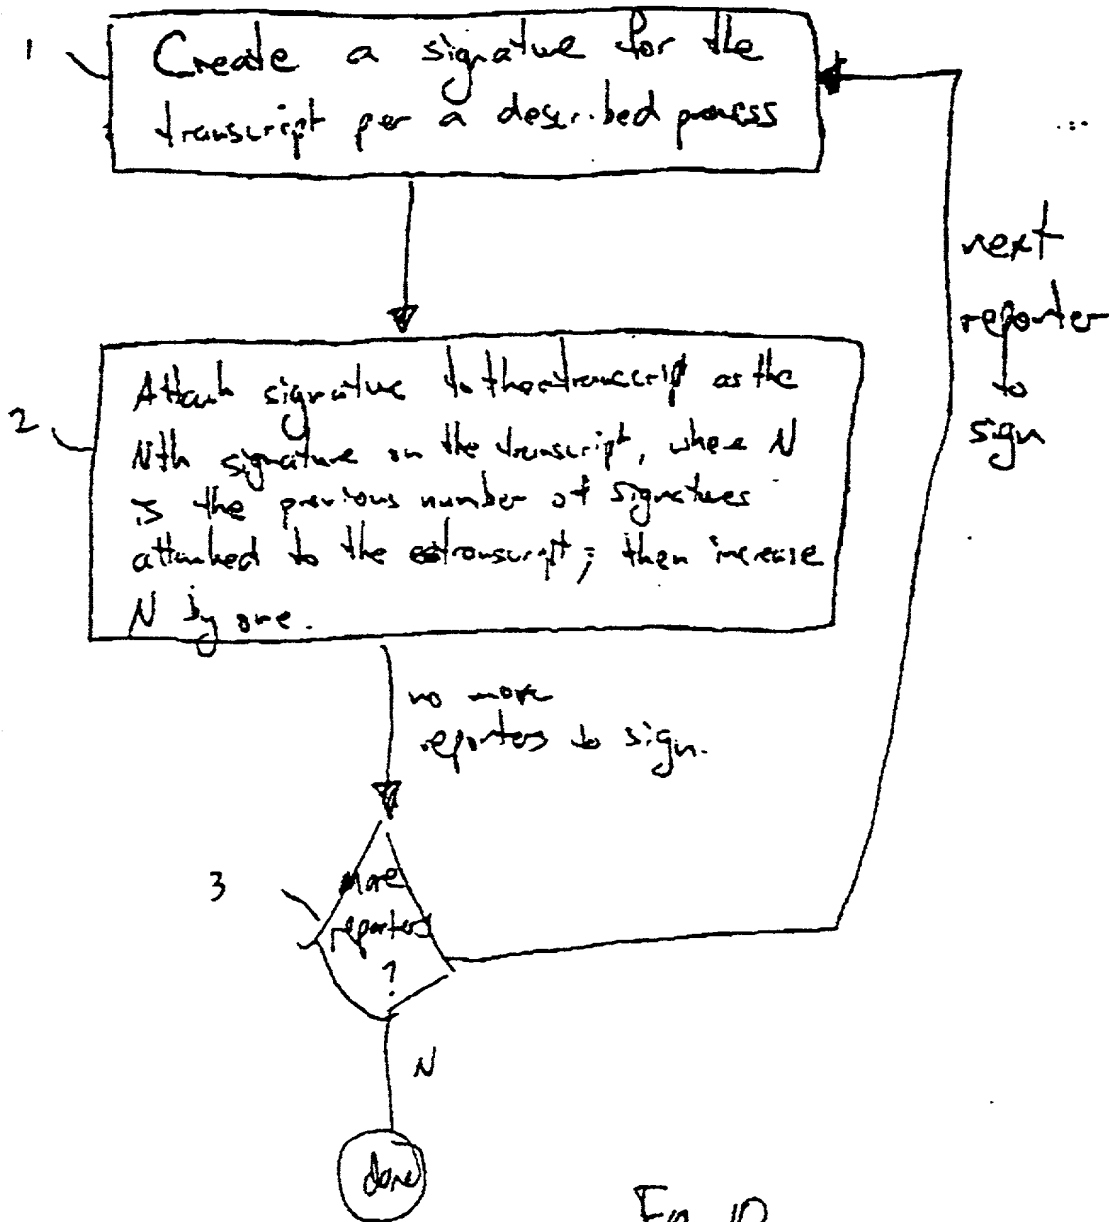 1
Create a signature for the
transcript per a described process
next
reporter
to
sign
2
Attach signature to the transcript as the
Nth signature on the transcript, where N
is the previous number of signatures
attached to the transcript; then increase
N by one.
no more
reporters to sign.
3
more
reporters
?
N
done
Fig. 10